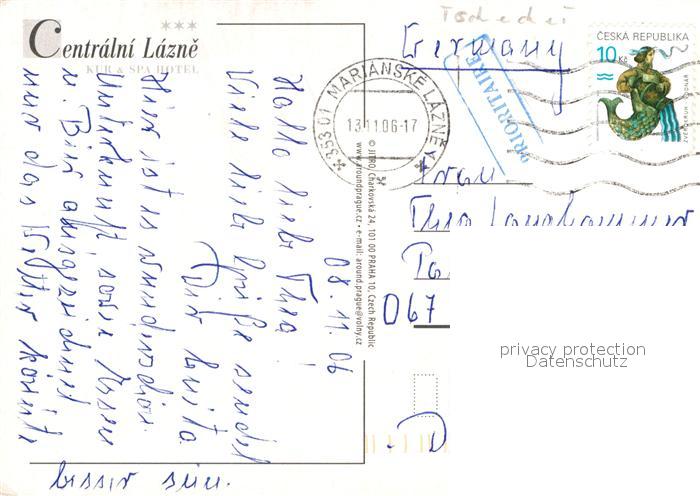 Centrální Lázně
KUR & SPA HOTEL
08.11.06
Hallo liebe Thea!
Viele liebe Grüße sendet
Dir
Hier ist es wunderschön.
Unterkunft sowie Essen
u. Bier ausgezeichnet
nur das Wetter könnte
besser sein.
© JITRO, Charkovská 24, 101 00 PRAHA 10, Czech Republic
www.aroundprague.cz • e-mail: around.prague@volny.cz
353 01 MARIÁNSKÉ LÁZNĚ
13.11.06-17
PRIORITAIRE
ČESKÁ REPUBLIKA
10 Kč
Germany
Frau
Thea
Pa
067
D
privacy protection
Datenschutz